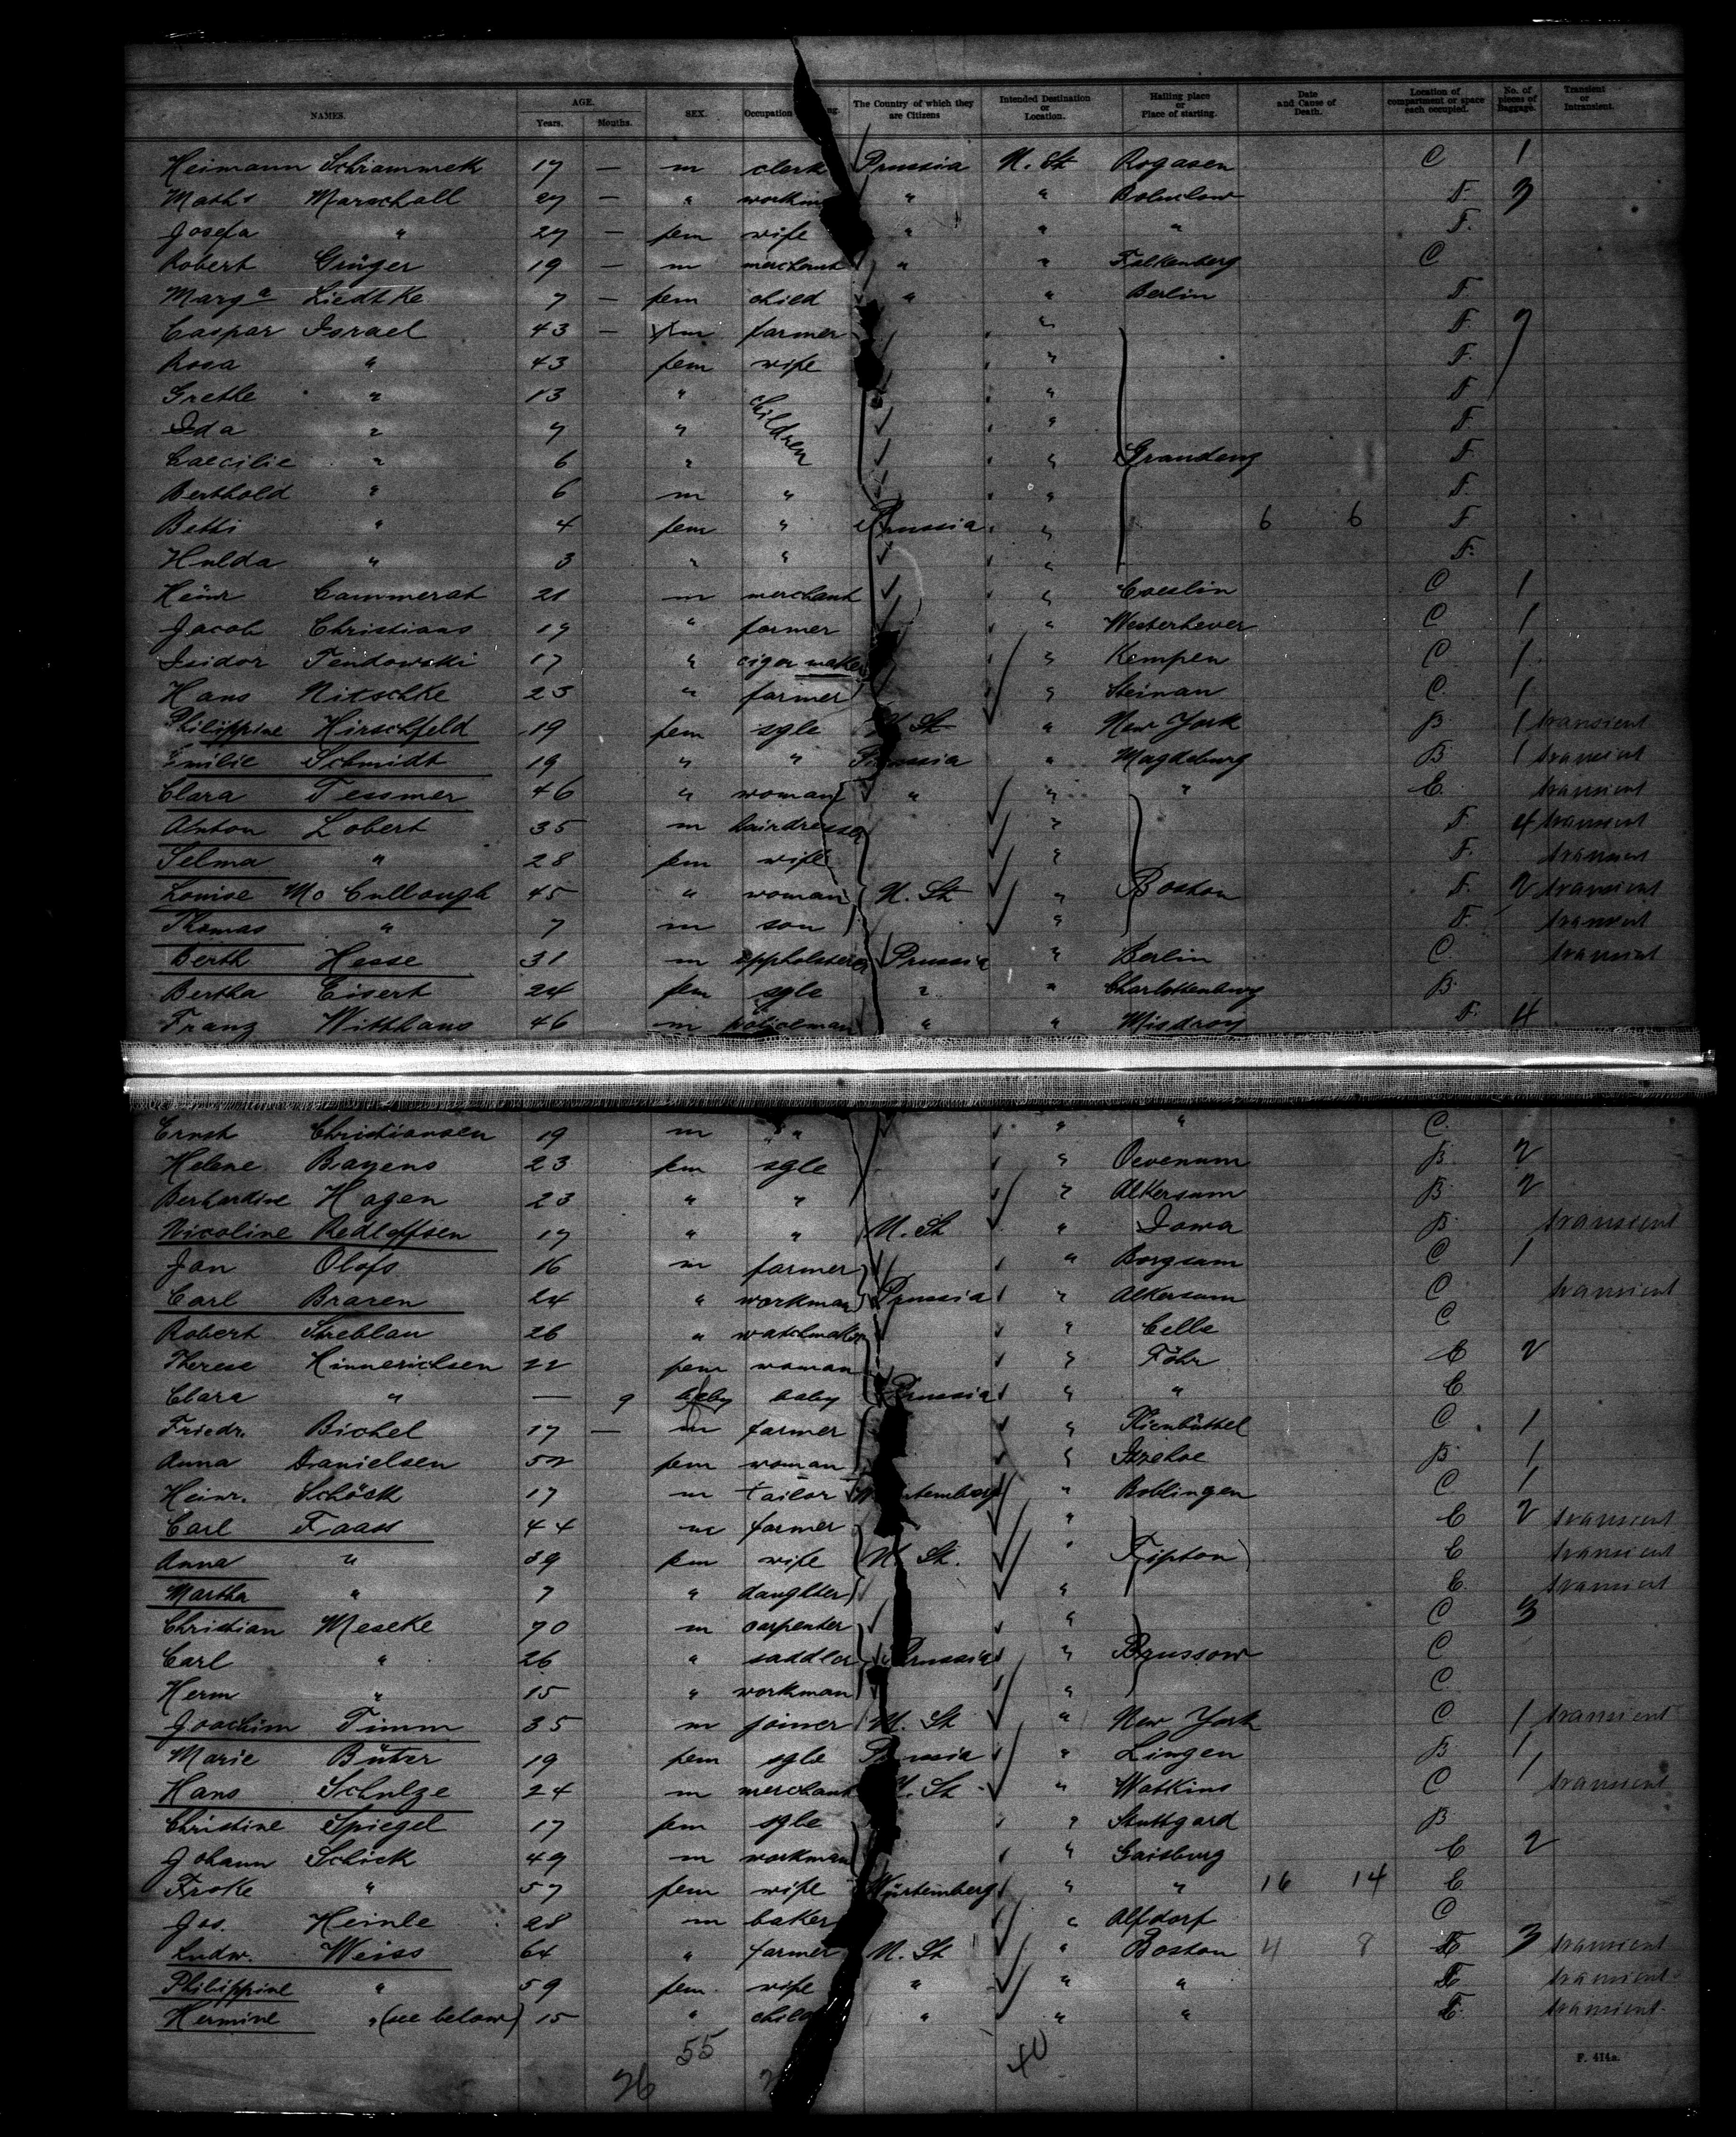 NAMES. AGE. Years. Months. SEX. Occupation The Country of which they are Citizens Intended Destination or Location. Hailing place or Place of starting. Date and Cause of Death. Location of compartment or space each occupied. No. of pieces of Baggage. Transient or Intransient.
Heimann Schrammek 17 — m clerk Prussia U. St. Rogasen C 1
Maths Marschall 27 — " " " F. 3
Josefa " 27 — fem wife " " " F.
Robert Grüger 19 — m merchant " " Falkenberg C
Marga Liedtke 7 — fem child " " Berlin F.
Caspar Israel 43 — m farmer " F. 7
Rosa " 43 fem wife " F.
Grethe " 13 " children " F
Ida " 7 " " F.
Caecilie " 6 " " Graudenz F.
Berthold " 6 m " " F.
Betti " 4 fem " Prussia " 6 6 F
Hulda " 3 " " " F.
Heinr Cammerat 21 m merchant " Coeslin C 1
Jacob Christians 19 " farmer " Westerhever C 1
Isidor Tendowski 17 " cigar maker " Kempen C 1
Hans Nitschke 23 " farmer " Steinau C. 1
Philippine Hirschfeld 19 fem sgle U. St " New York B 1 transient
Emilie Schmidt 19 " " Prussia " Magdeburg B 1 transient
Clara Tessmer 46 " woman " " " E. transient
Anton Lobert 35 m hairdresser " F. 4 transient
Selma " 28 fem wife " F. transient
Louise Mc Cullough 45 " woman U. St " Boston F. 2 transient
Thomas " 7 m son " F. transient
Berth Hesse 31 m uppholsterer Prussia " Berlin C transient
Bertha Eisert 24 fem sgle " " Charlottenburg B
Franz Witthaus 46 m policeman " " Misdroy F. 4
Ernst Christiansen 19 m " " " C.
Helene Bayens 23 fem sgle " Oevenum B 2
Berhardine Hagen 23 " " " Alkersum B 2
Nicoline Redleffsen 17 " " U. St " Iowa B transient
Jan Olofs 16 m farmer " Borgsum C 1
Carl Braren 24 " workman Prussia " Alkersum C transient
Robert Streblau 26 " watchmaker " Celle C
Therese Hinnerichsen 22 fem woman " Föhr E 2
Clara " — 9 baby baby Prussia " " E
Friedr. Bichel 17 — m farmer " C 1
Anna Danielsen 52 fem woman " Itzehoe B 1
Heinr. Schöck 17 m tailor Würtemberg " Boblingen C 1
Carl Faass 44 m farmer " E 2 transient
Anna " 39 fem wife U. St. " Tipton E transient
Martha " 7 " daughter " E. transient
Christian Meseke 70 m carpenter " C 3
Carl " 26 " saddler Prussia " Brussow C
Herm " 15 " workman " C
Joachim Timm 35 m joiner U. St " New York C 1 transient
Marie Büter 19 fem sgle Prussia " Lingen B 1
Hans Schulze 24 m merchant U. St " Watkins C 1 transient
Christine Spiegel 17 fem sgle " Stuttgard B
Johann Schick 49 m workman " Gaisburg E 2
" 57 fem wife Würtemberg " " 16 14 E
Jos. Heinle 28 m baker " Alfdorf C
Ludw. Weiss 64 " farmer U. St " Boston 4 8 E 3 transient
Philippine " 59 fem. wife " " " E transient
Hermine " (see below) 15 " child " " " E. transient
55 40
26
F. 414a.